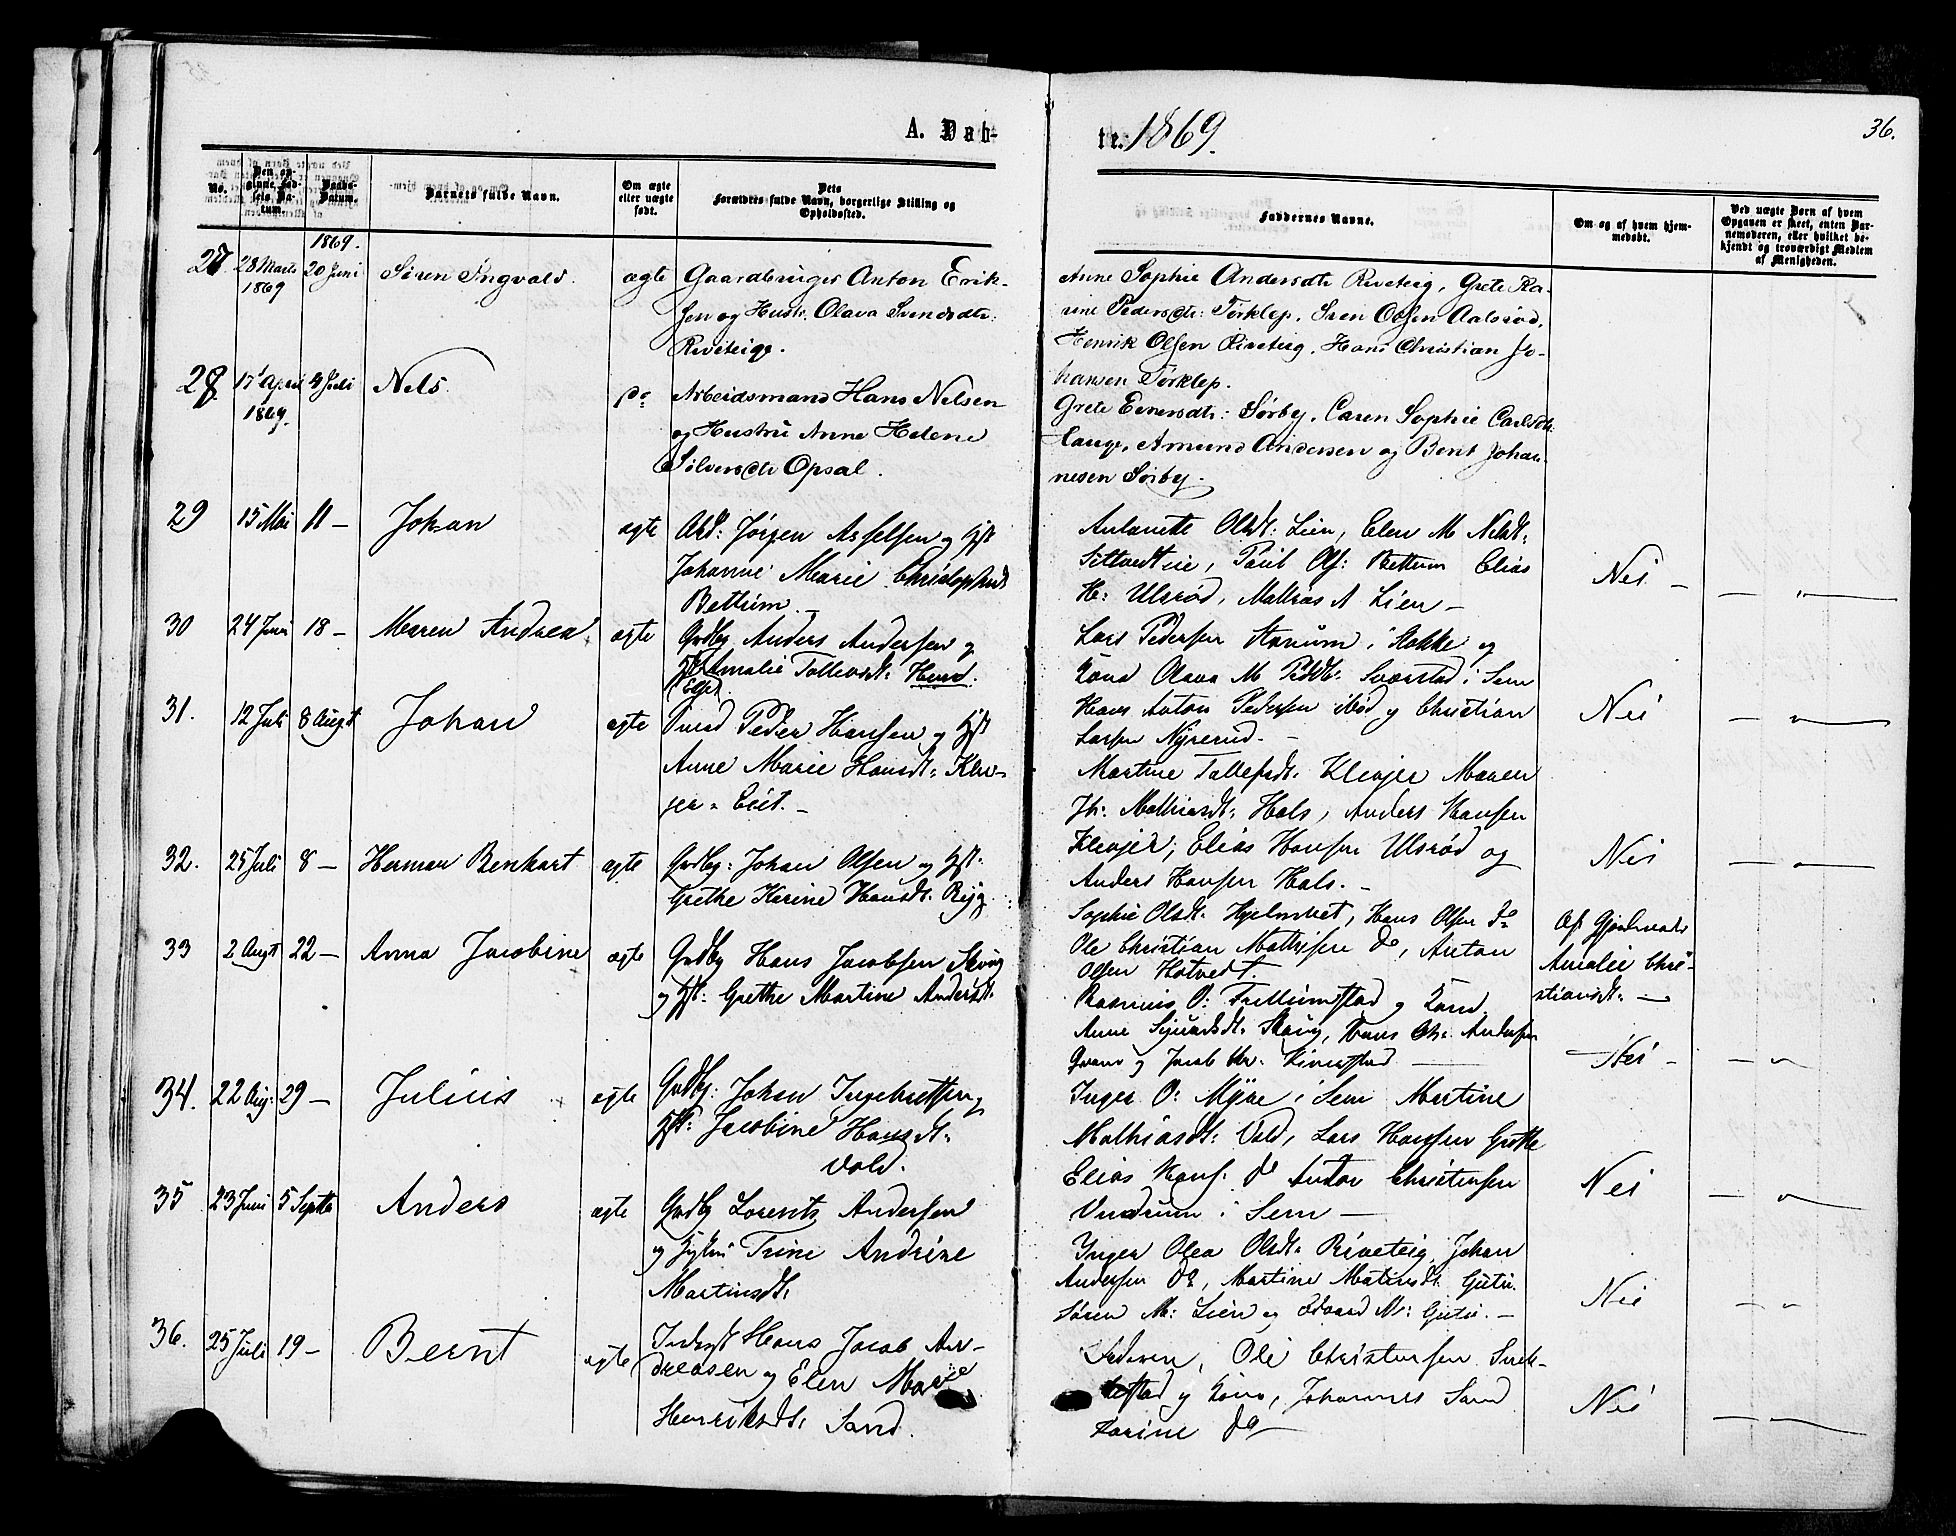 A. Dåb-
te. 1869.
36.
No.
Barnets fulde Navn.
Om ægte
eller uægte
født.
Dets
Forældres fulde Navn, borgerlige Stilling og
Opholdssted.
Faddernes Navne.
Om og af hvem hjem-
medøbt.
Ved uægte Børn af hvem
Opgaven er skeet, enten Bar-
nemoderen, eller hvilket be-
kjendt og troværdigt Medlem
af Menigheden.
1869.
27. 28 Marts 20 Juni Søren Ingvald. ægte Gaardbruger Anton Erik-
1869
sen og Hustr. Olava Svendsdtr.
Riveteige.
Anne Sophie Andersdtr Riveteig, Grete Ka-
rine Pedersdtr: Tørklep, Sren Olsen Aalsrød,
Henrik Olsen Riveteig, Hans Christian Jo-
hansen Tørklep.
28. 17 April 4 Juli Nels. do Arbeidsmand Hans Nelsen
1869.
og Hustru Anne Helene
Sølversdtr Opsal.
Grete Evensdtr: Sørby, Caren Sophie Carlsdtr
Hauge, Amund Andersen og Bent Johan-
nesen Sørby.
29 15 Mai 11 – Johan ægte Arb: Jørgen Asselsen og Hst
Johanne Marie Christophsdt
Bettum. –
Antonette Olsdt: Lien, Elen M Nilsdt:
Paul Ols: Bettum Elias
H: Ulsrød, Mathias A Lien –
Nei – – " –
30 24 Juni 18 – Maren Andrea ægte Grdbg Anders Andersen og
Hst Amalie Tollevsdt: Hund.
Lars Pedersen i Stokke og
Kona Olava M Pedsdt: Sværstad i Sem
Hans Anton Pedersen og Christian
Larsen Nyrerud. –
Nei – " –
31. 12 Juli 8 Augst Johan ægte Smed Peder Hansen og Hst
Anne Marie Hansdt: Klev-
jer – Eiet. –
Martine Tollefsdt. Klevjer Maren
Mathiasdt: Hals, Anders Hansen
Klevjer, Elias Hansen Ulsrød og
Anders Hansen Hals. –
Nei – " –
32. 25 Juli 8 – Herman Benhart ægte Grdbg: Johan Olsen og Hst:
Grethe Karine Hansdt.
Sophie Olsdt. Hans Olsen do
Ole Christian Mathisen do, Anton
Olsen Hotvedt.
Af Gjordmoder
Amalie Chri-
stiansdt. –
33 2 Augst 22 – Anna Jacobine ægte Grdbg Hans Jacobsen Skoug
og Hst: Grethe Martine Andersdt.
Rasmus O: og Kone
Anne Sjuersdt: Skoug, Hans Chr. Andersen
og Jacob
– Nei – – "
34. 22 Aug: 29 – Julius ægte Grdbg: Johan Ingebretsen og
Hst: Jacobine Hansdt:
Vold.
Inger O: Myre i Sem Martine
Mathiasdt: Vold, Lars Hansen Grette
Elias Hans: do Anton Christensen
Vendrum i Sem –
Nei – " –
35 23 Juni 5 Septbr Anders ægte Grdbg Lorentz Andersen
og Hustru Trine Andrine
Martinsdt:
Inger Olea Olsdt: Riveteig, Johan
Andersen do, Martine Matinsdt Gutu.
Søren M: Lien og Edvard M: Gutu. –
Nei – "
36. 25 Juli 19 – Bernt ægte Inderst Hans Jacob An-
dreasen og Elen Marie
Henriksdt: Sand.
Faderen, Ole Christensen
og Kone, Johannes Sand
Karine do
Nei – " –